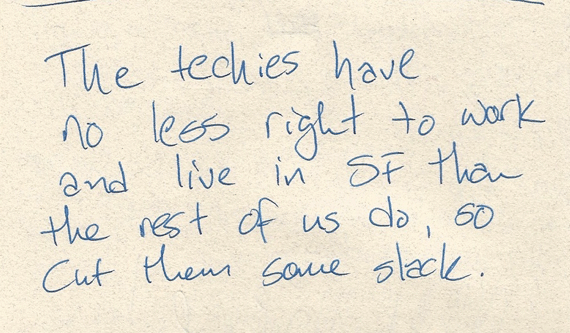 The techies have
no less right to work
and live in SF than
the rest of us do, so
Cut them some slack.